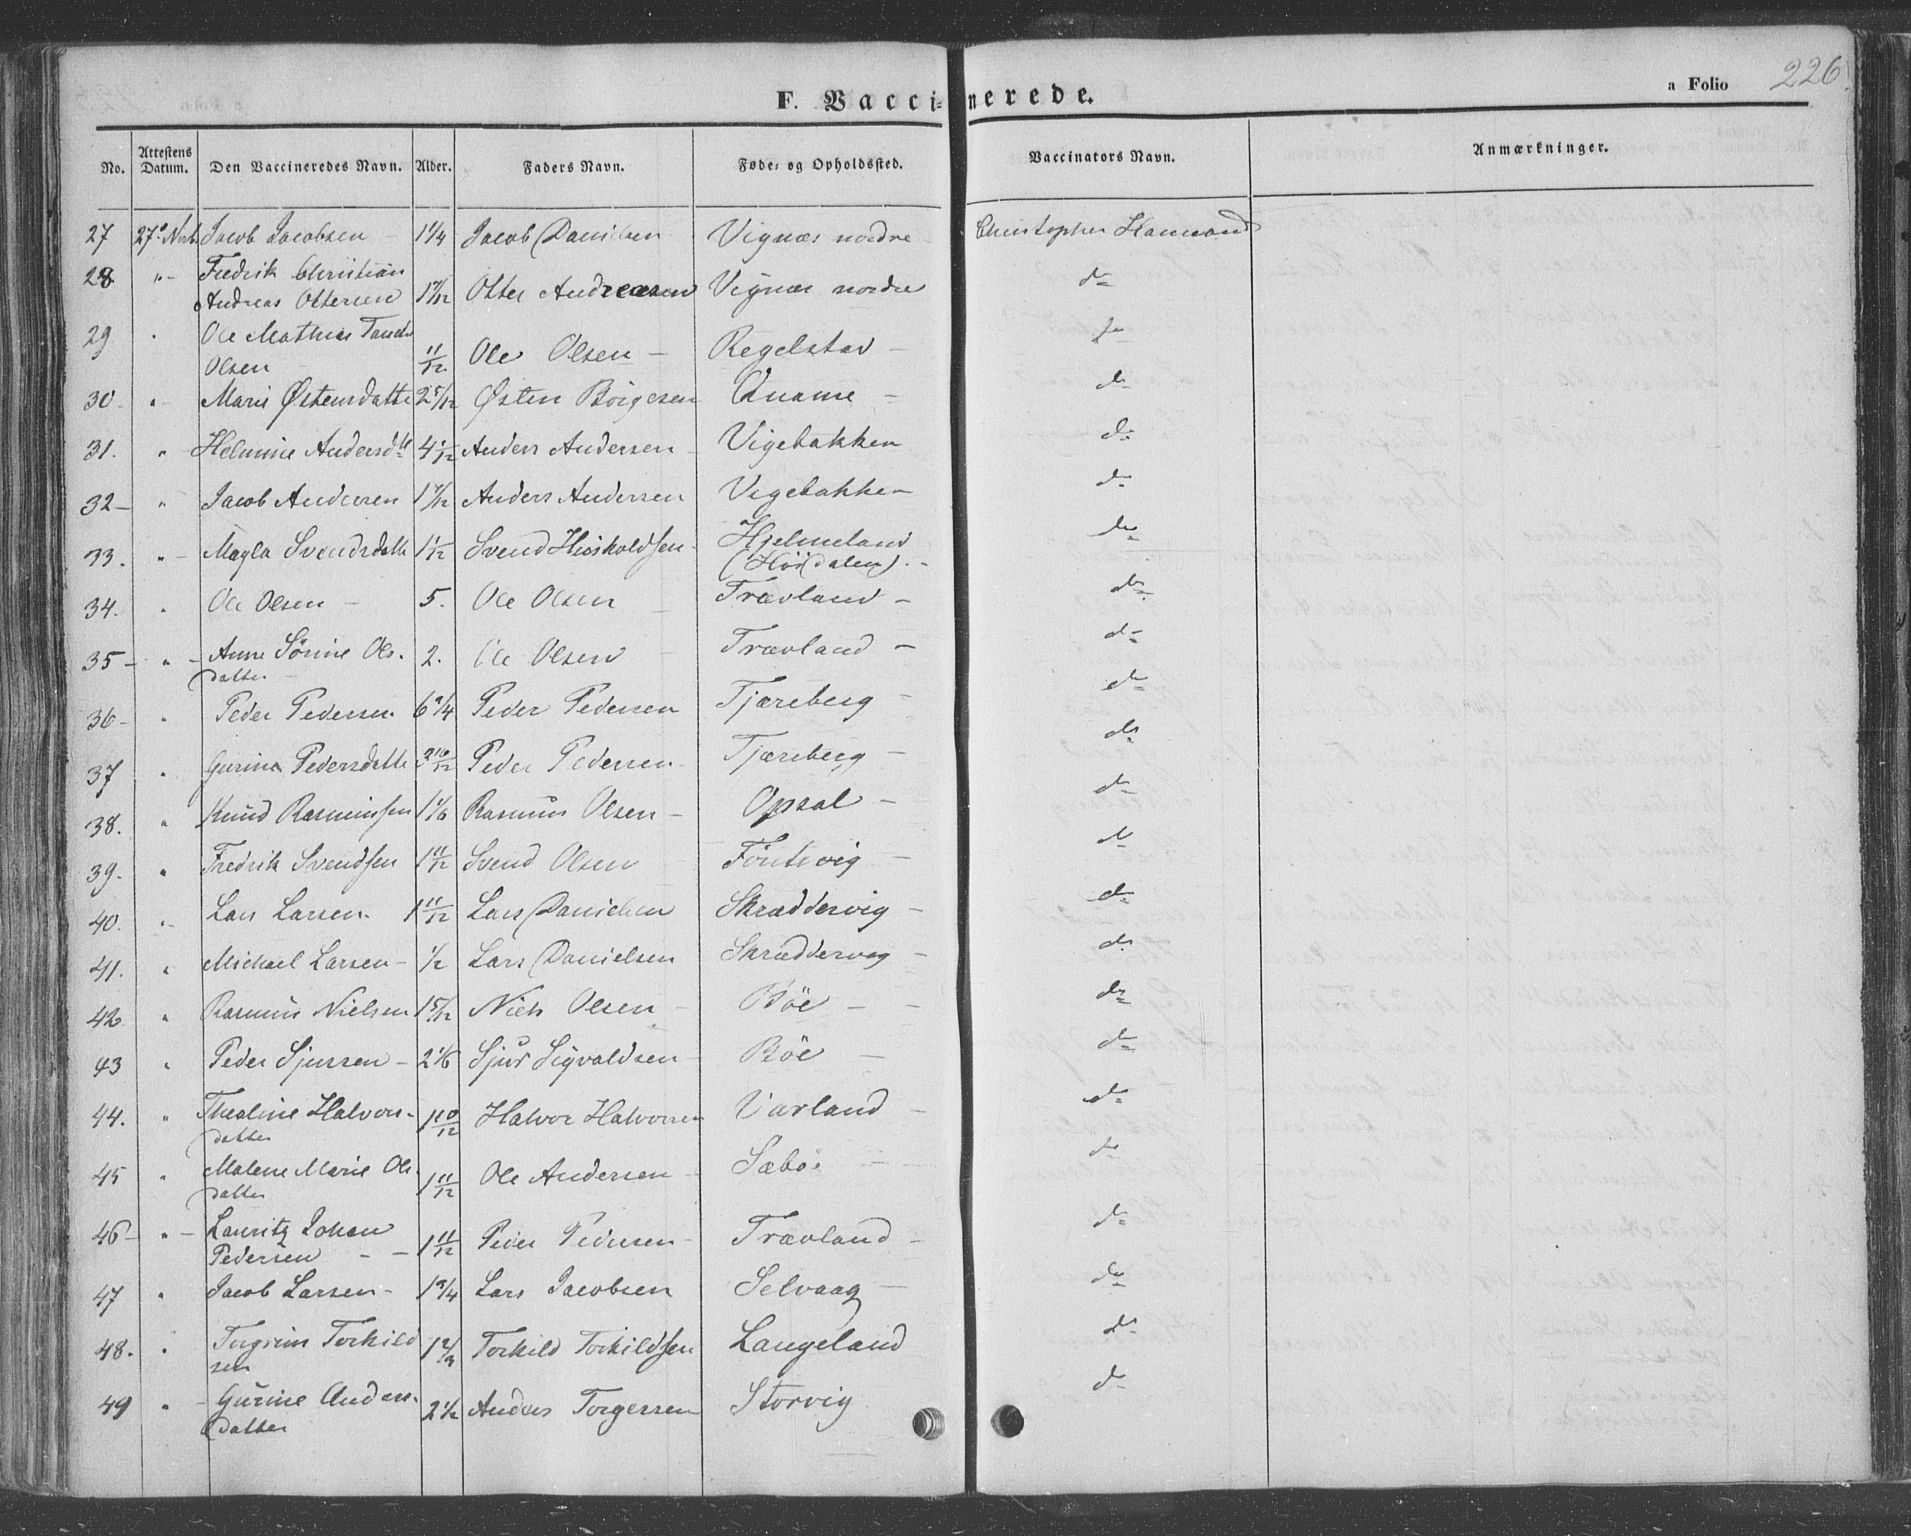 F. Vaccinerede.
a Folio 226
No. Attestens Datum. Den Vaccineredes Navn. Alder. Faders Navn. Føde- og Opholdssted. Vaccinators Navn. Anmærkninger.
27 27de Jacob Jacobsen 1 1/4 Jacob Danielsen Vignæs nordre Christopher
28 " Fredrik Christian
Andreas Ottersen 1 7/12 Otter Andreasen Vignæs nordre do
29 " Ole Mathias
Olsen 11/12 Ole Olsen Regelstav do
30 " Marie Østensdatter 2 5/12 Østen Börgesen Qname do
31. " Helmine Andersdtr 4 1/12 Anders Andersen Vigebakken do
32 " Jacob Andersen 1 7/12 Anders Andersen Vigebakken do
33. " Magla Svendsdatter 1 1/12 Svend Höskoldsen Hjelmeland do
(Hösdalen)
34. " Ole Olsen 5. Ole Olsen Trævland do
35 " Anne Sørine Ols- 2. Ole Olsen Trævland do
datter
36 " Peder Pedersen 6 3/4 Peder Pedersen Tjæreberg do
37 " Gurine Pedersdatter 3 10/12 Peder Pedersen Tjæreberg do
38. " Knud Rasmussen 1 1/6 Rasmus Olsen Opsal do
39. " Fredrik Svendsen 1 11/12 Svend Olsen do
40. " Lars Larsen 1 11/12 Lars Danielsen Skræddervig do
41. " Michael Larsen 1/2 Lars Danielsen Skræddervig do
42 " Rasmus Nielsen 1 5/12 Niels Olsen Böe do
43 " Peder Sjursen 2 1/6 Sjur Sigvaldsen Böe do
44. " Thealine Halvors- 1 10/12 Halvor Halvorsen Varland do
datter
45 " Malene Marie Ols- 1 11/12 Ole Andersen Sæböe do
datter
46 " Lauritz Johan
Pedersen 1 11/12 Peder Pedersen Trævland do
47 " Jacob Larsen 1 3/4 Lars Jacobsen Selvaag do
48. " Torgrim Torkild 1 2/3 Torkild Torkildsen Langeland do
sen
49 " Gurine Anders- 2 1/2 Anders Torgersen Storvig do
datter